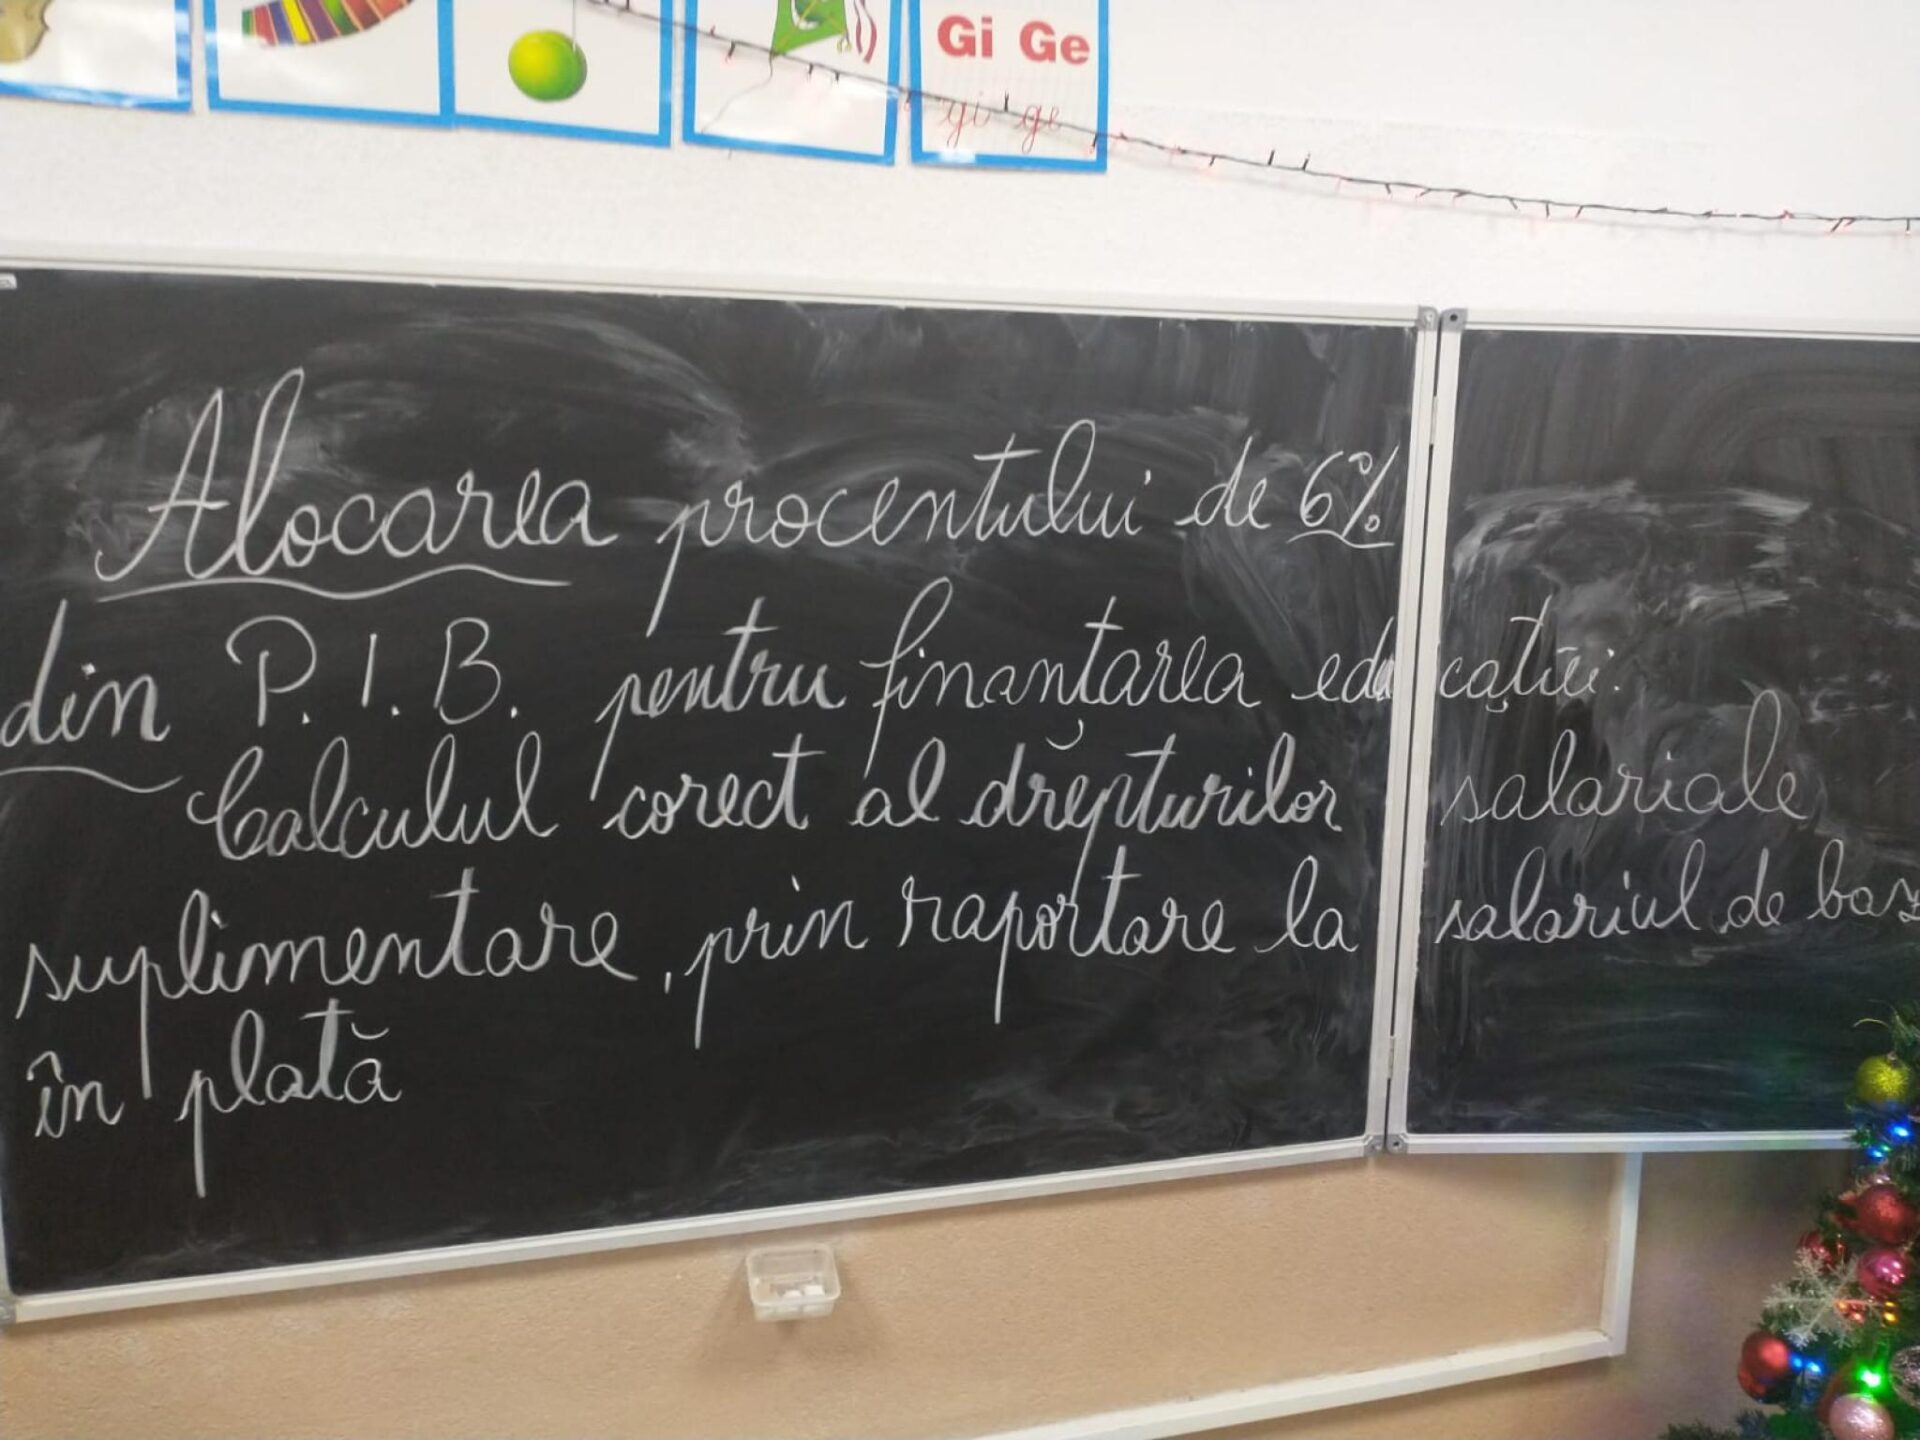 Gi Ge
gi ge
Alocarea procentului de 6%
din P.I.B. pentru finanțarea educației.
Calculul corect al drepturilor salariale
suplimentare, prin raportare la salariul de baz
în plată